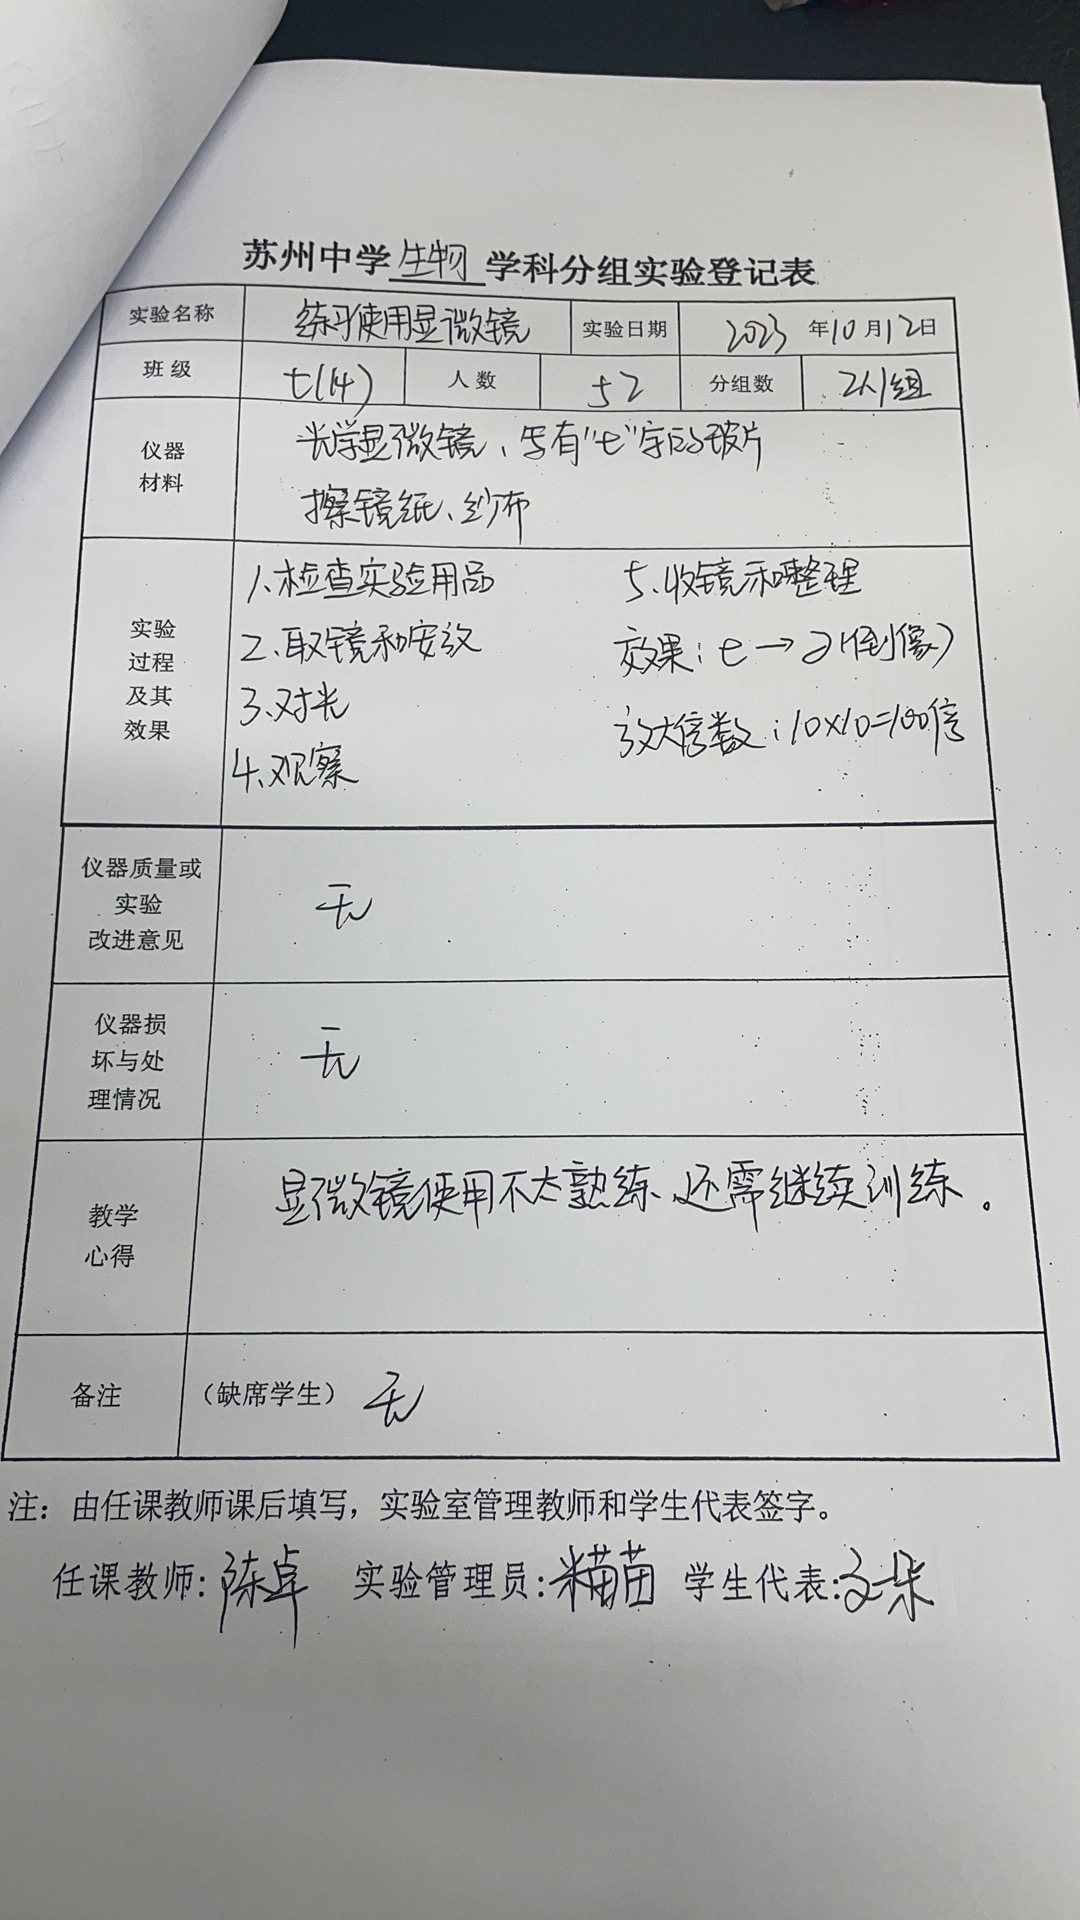 苏州中学生物学科分组实验登记表
实验名称 练习使用显微镜 实验日期 2023年10月12日
班级 七(14) 人数 52 分组数 2人1组
仪器材料
光学显微镜、写有"七"字的玻片
擦镜纸、纱布
实验过程及其效果
1、检查实验用品
2、取镜和安放
3、对光
4、观察
5、收镜和整理
效果:e→ә(倒像)
放大倍数:10×10=100倍
仪器质量或
实验
改进意见
无
仪器损
坏与处
理情况
无
教学
心得
显微镜使用不太熟练、还需继续训练。
备注 (缺席学生) 无
注:由任课教师课后填写,实验室管理教师和学生代表签字。
任课教师:陈卓 实验管理员: 学生代表: